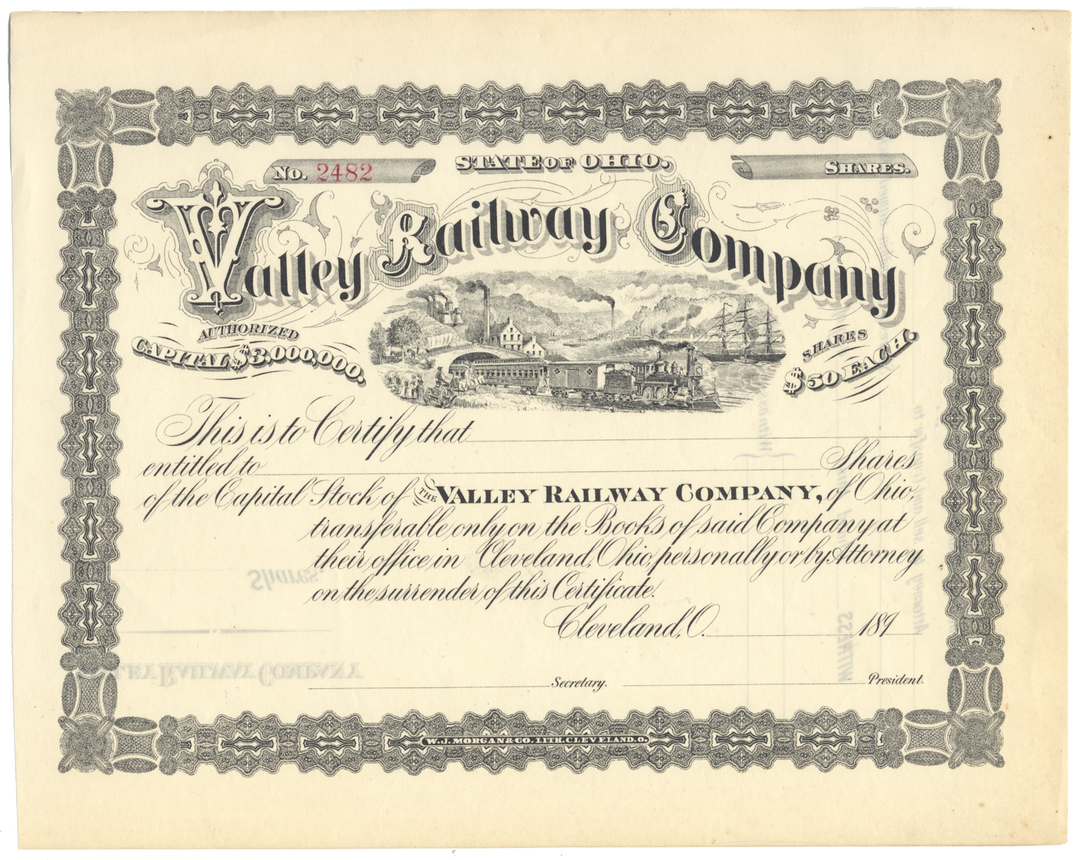 No. 2482
STATE OF OHIO.
SHARES.
Valley Railway Company
AUTHORIZED
CAPITAL $3,000,000.
SHARES
$50 EACH.
This is to Certify that
entitled to Shares
of the Capital Stock of THE VALLEY RAILWAY COMPANY, of Ohio,
transferable only on the Books of said Company at
their office in Cleveland, Ohio, personally or by Attorney
on the surrender of this Certificate.
Cleveland, O. 189
Shares.
WITNESS
LEY RAILWAY COMPANY
Secretary. President.
W.J. MORGAN & CO. LITH. CLEVELAND. O.